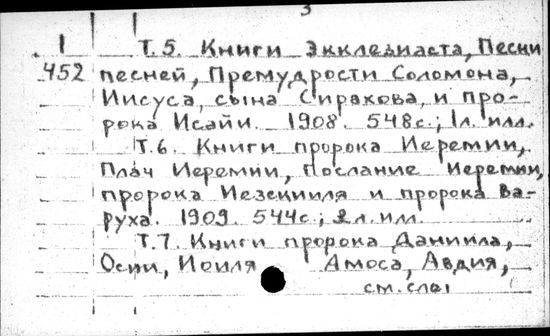 3
1 Т.5. Книги Экклезиаста, Песни
452 песней, Премудрости Соломона,
Иисуса, сына Сирахова, и про-
рока Исайи. 1908. 548с.; 1л. илл.
Т.6. Книги пророка Иеремии,
Плач Иеремии, Послание Иеремии,
пророка Иезекииля и пророка Ва-
руха. 1909. 544с.; 2л. илл.
Т.7. Книги пророка Даниила,
Осии, Иоиля Амоса, Авдия,
см. сл.